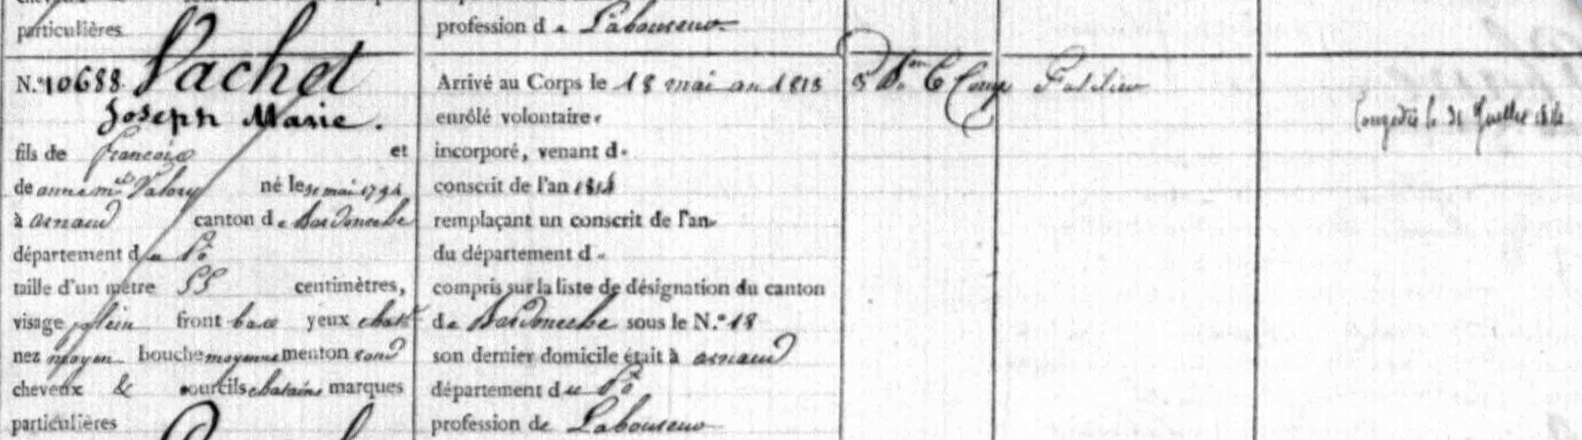 particulières
profession de Laboureur
N.° 10688. Pachet
Joseph Marie.
fils de françois et
de anne m.ie Valory né le 31 mai 1794
à arnaud canton de Bardonneche
département du Pô
taille d'un mètre 55 centimètres,
visage plein front bas yeux chat
nez moyen bouche moyenne menton rond
cheveux & sourcils chatains marques
particulières
Arrivé au Corps le 18 mai an 1813
enrôlé volontaire
incorporé, venant d
conscrit de l'an 1814
remplaçant un conscrit de l'an
du département d
compris sur la liste de désignation du canton
de Bardonneche sous le N.° 18
son dernier domicile était à arnaud
département du Pô
profession de Laboureur
5 B.on 6 Comp
Fusilier
Congédié le 31 Juillet 1814